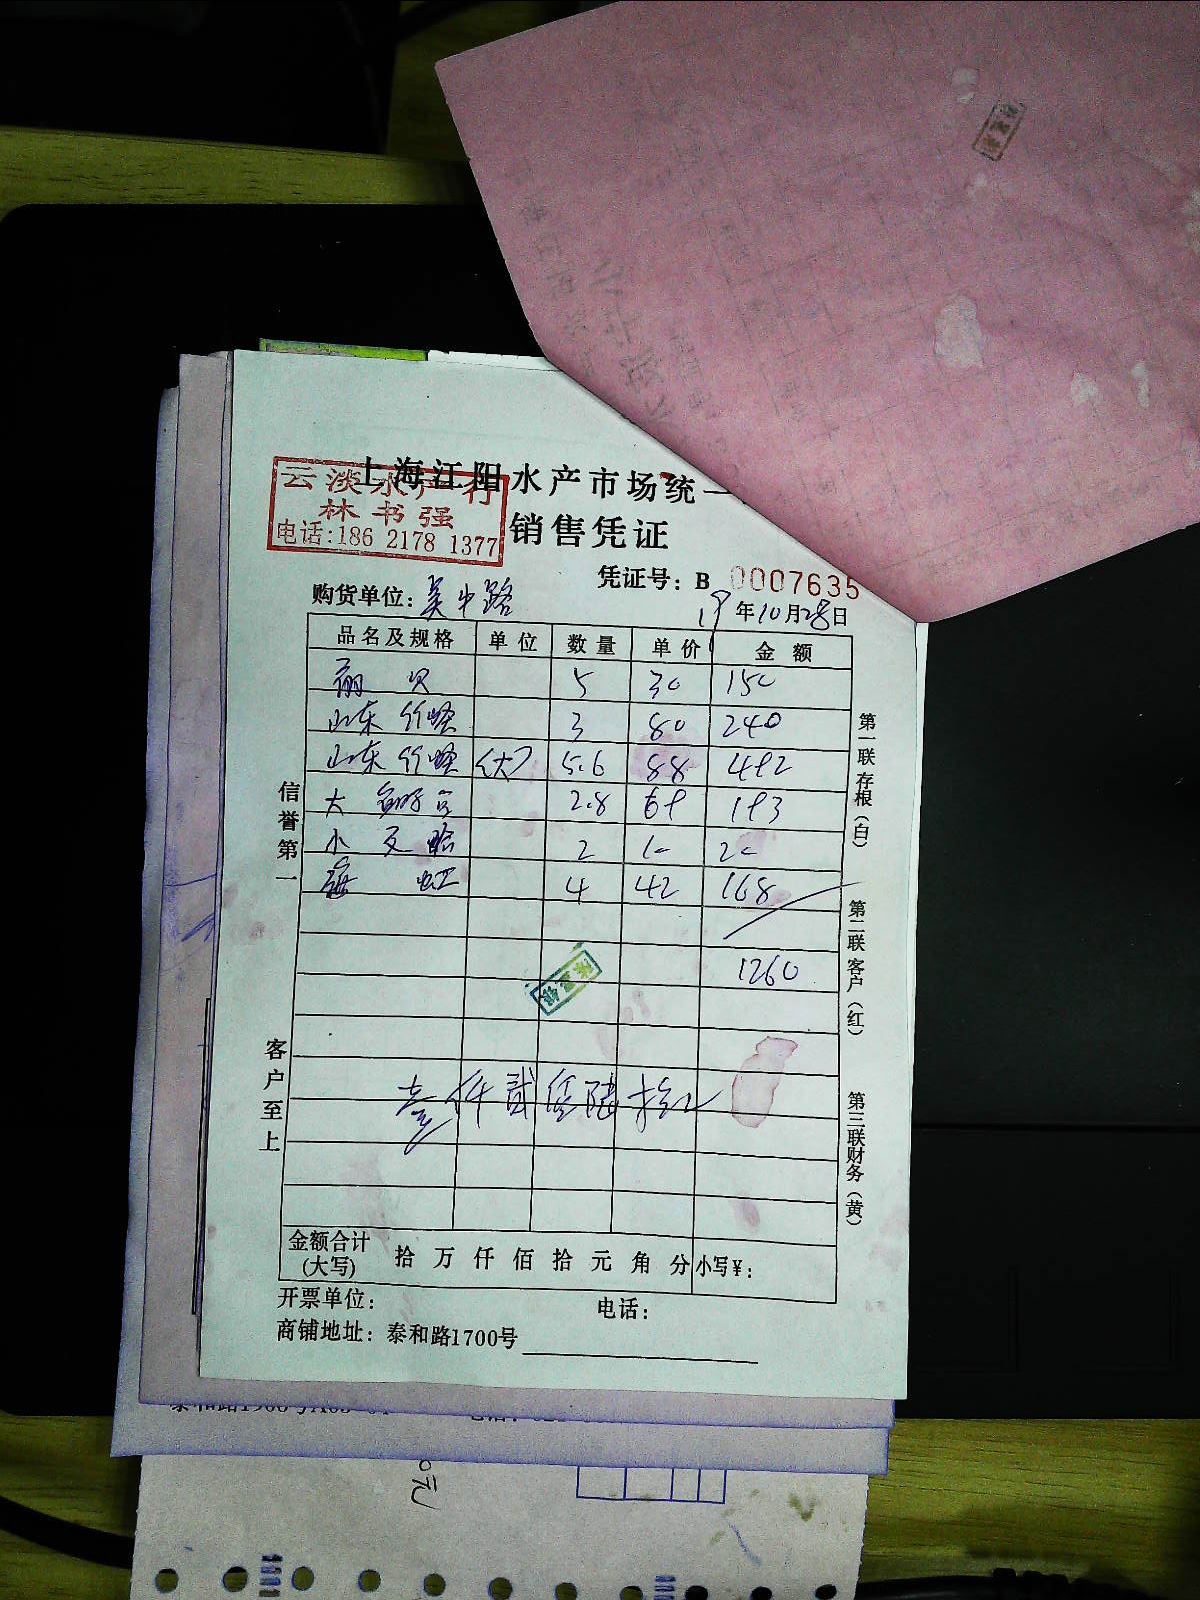 上海江阳水产市场统一
销售凭证
云淡水产行
林书强
电话:186 2178 1377
凭证号: B 0007635
购货单位: 吴中路
19年10月28日
品名及规格 单位 数量 单价 金额
丽贝 5 30 150
山东竹蛏 3 80 240
山东竹蛏 (大) 5.6 88 492
大 2.8 69 193
小文蛤 2 10 20
海虹 4 42 168
1260
壹仟贰佰陆拾元
金额合计(大写) 拾万仟佰拾元角分 小写¥:
开票单位: 电话:
商铺地址: 泰和路1700号
信誉第一
客户至上
第一联存根(白)
第二联客户(红)
第三联财务(黄)
0元